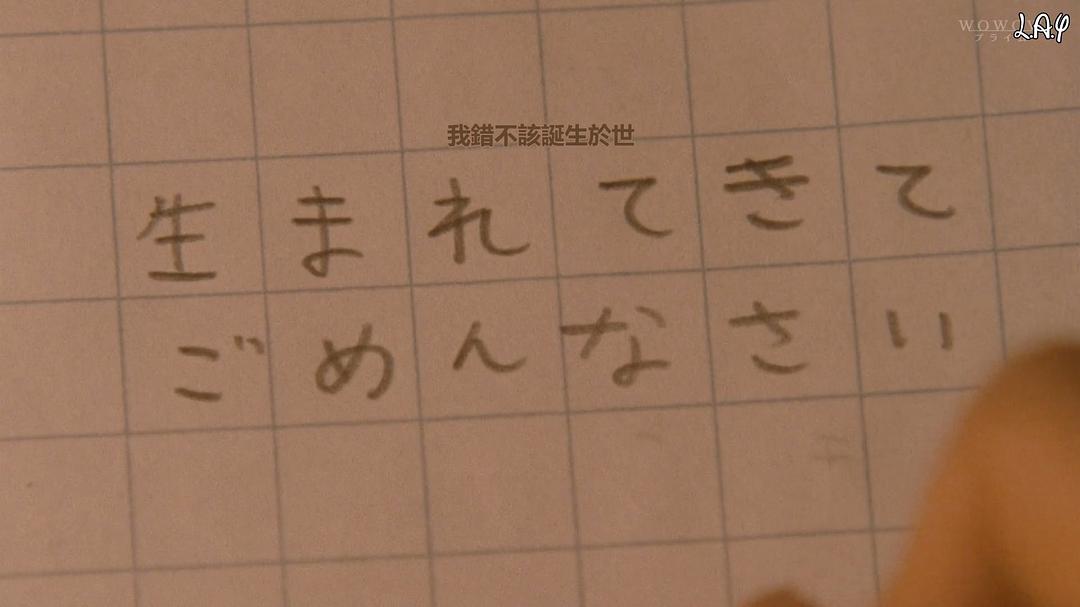 WOWO
プライ
L.A.φ
我錯不該誕生於世
生まれてきて
ごめんなさい